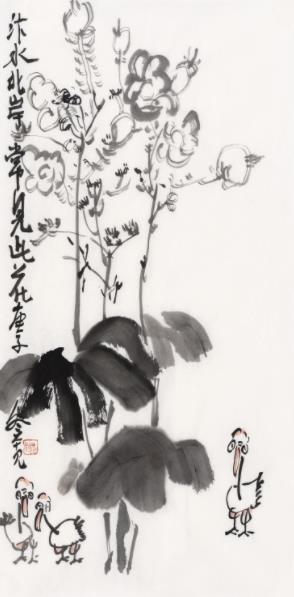 汴水北岸常見此花庚子冬